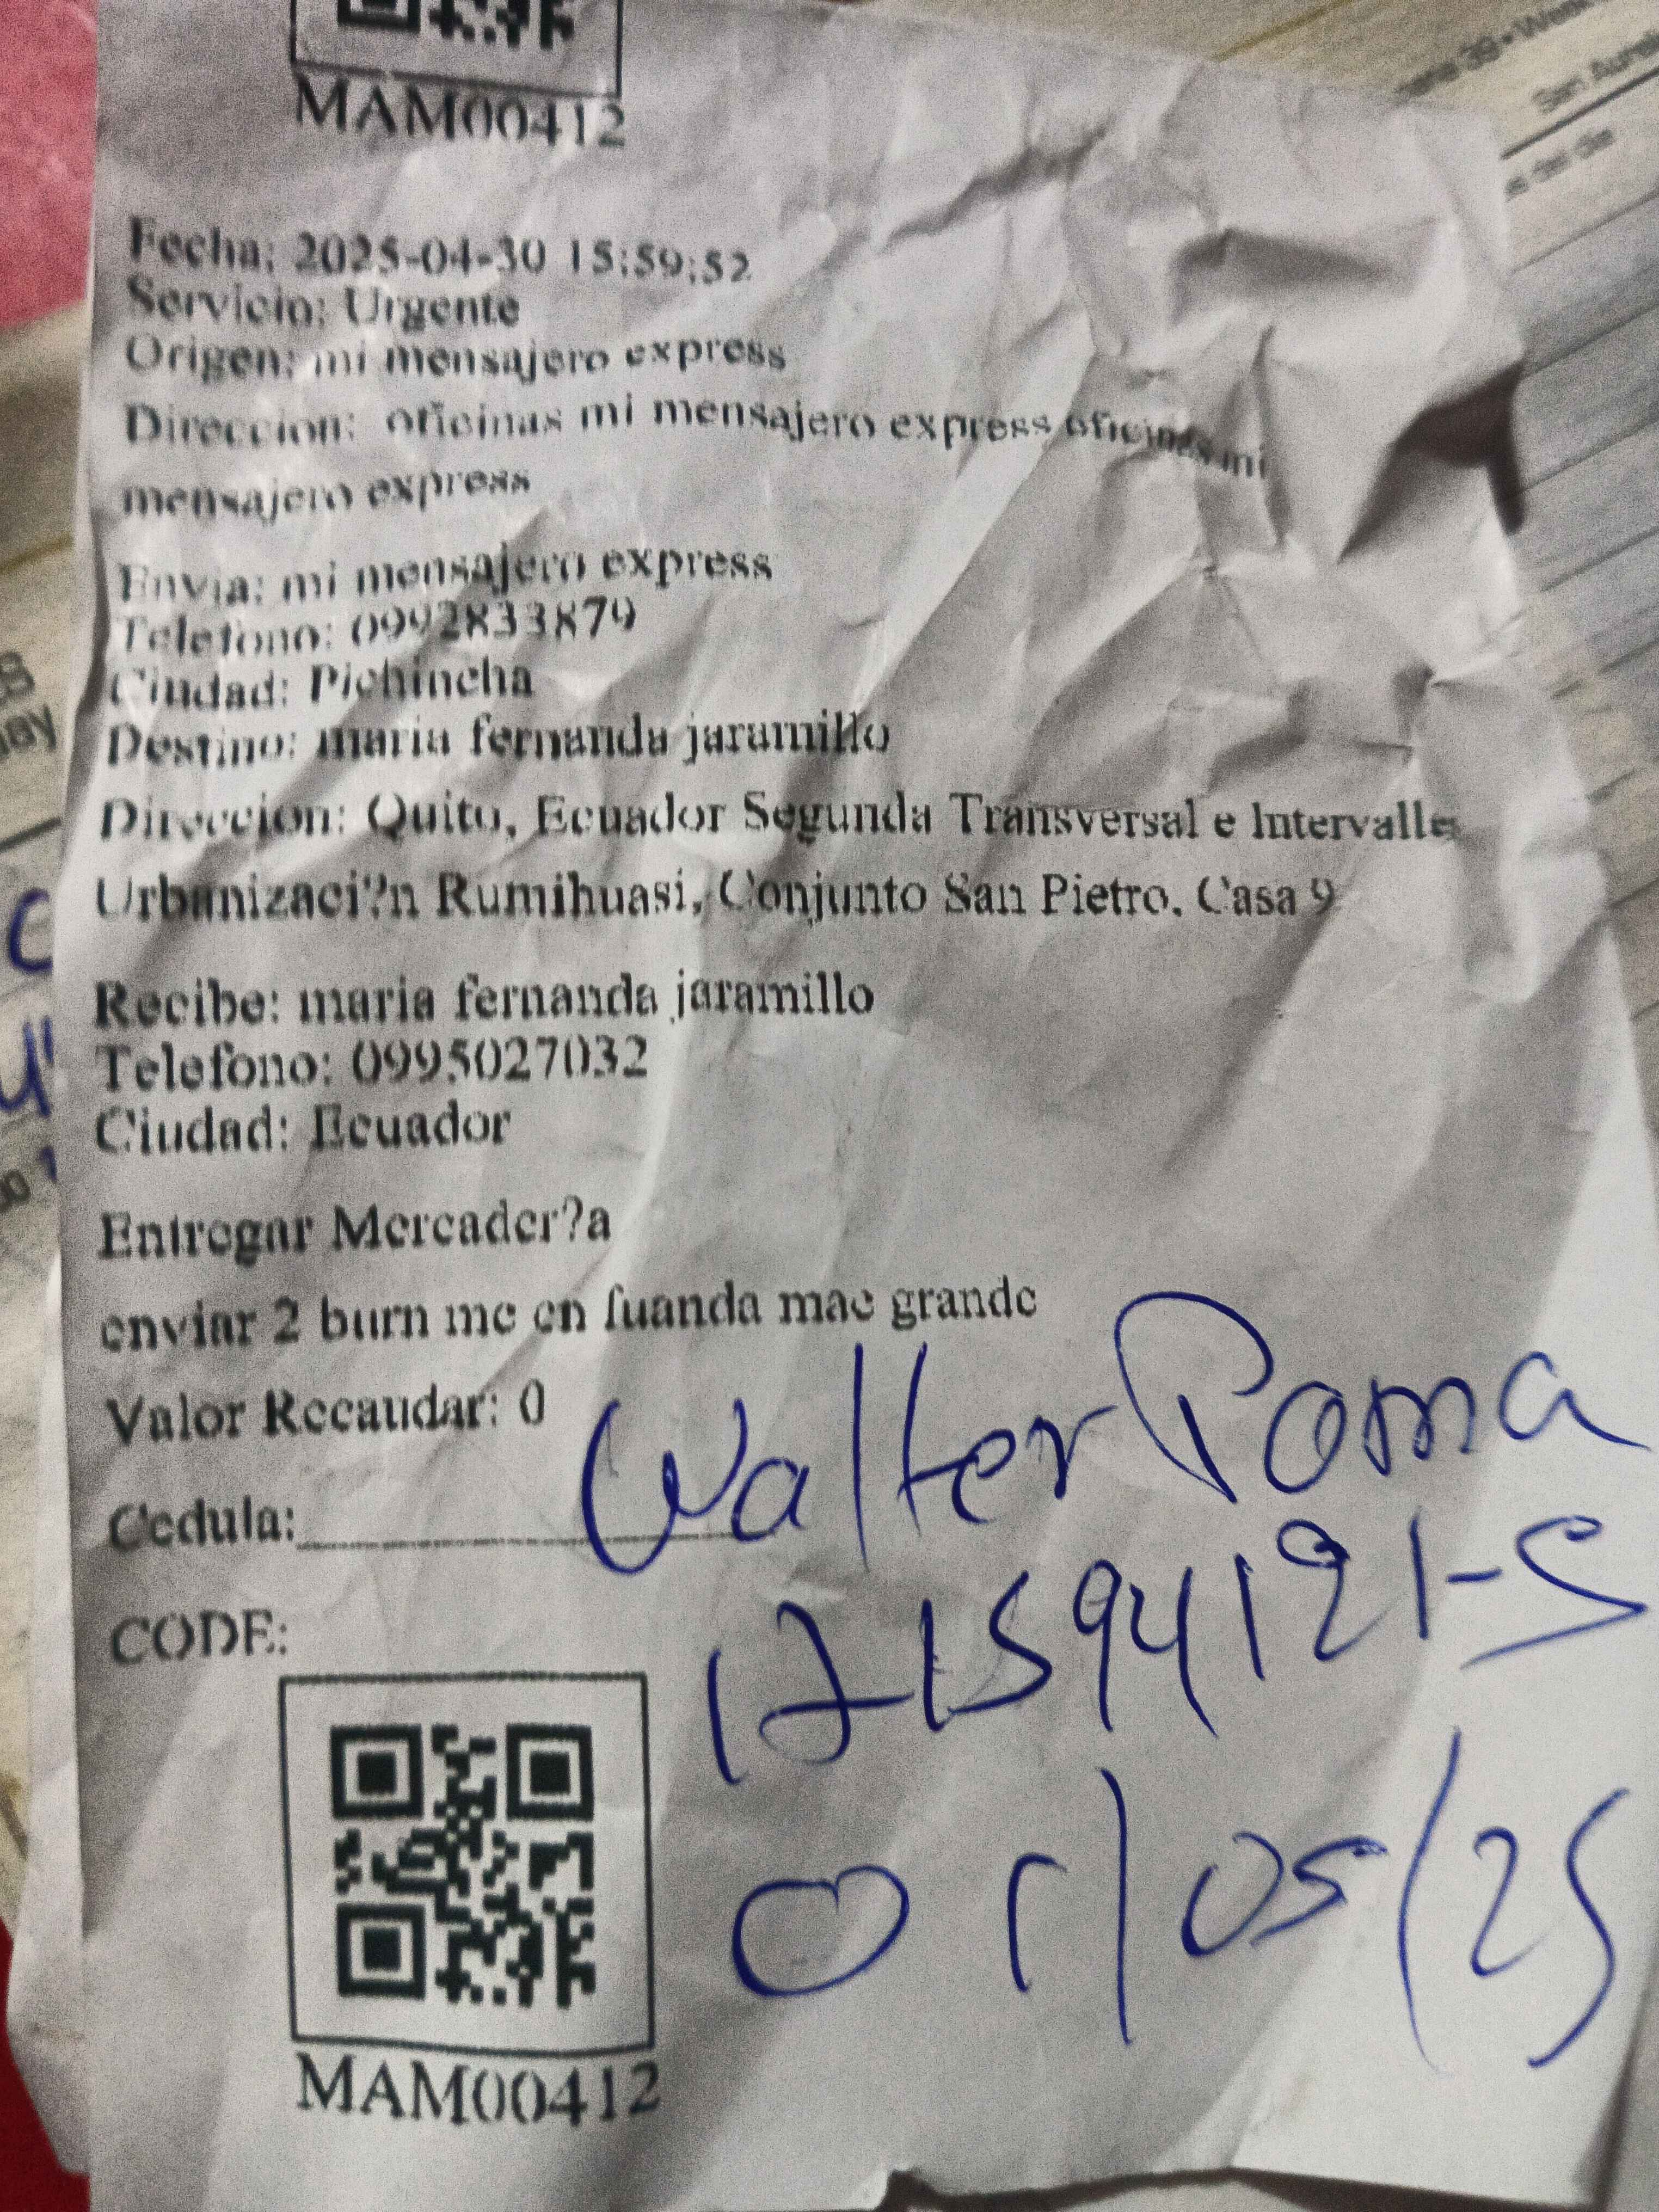 MAM00412
Fecha: 2025-04-30 15:59:52
Servicio: Urgente
Origen: mi mensajero express
Direccion: oficinas mi mensajero express oficinas mi
mensajero express
Envia: mi mensajero express
Telefono: 0992833879
Ciudad: Pichincha
Destino: maria fernanda jaramillo
Direccion: Quito, Ecuador Segunda Transversal e Intervalles
Urbanizaci?n Rumihuasi, Conjunto San Pietro, Casa 9
Recibe: maria fernanda jaramillo
Telefono: 0995027032
Ciudad: Ecuador
Entregar Mercader?a
enviar 2 burn me en fuanda mac grande
Valor Recaudar: 0
Walter Poma
Cedula:
171594121-5
CODE:
01/05/25
MAM00412
San